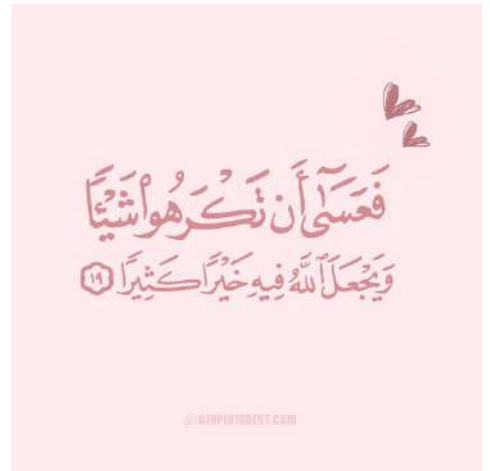 فَعَسَىٰٓ أَن تَكْرَهُوا۟ شَيْـًٔا
وَيَجْعَلَ ٱللَّهُ فِيهِ خَيْرًا كَثِيرًا ١٩